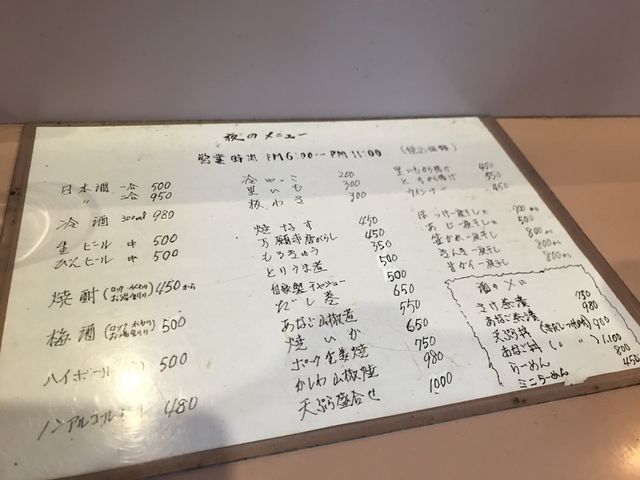 夜のメニュー
営業時間 PM6:00〜PM11:00 (税込価格)
日本酒 一合 500
〃 二合 950
冷酒 300ml 980
生ビール 中 500
びんビール 中 500
焼酎 (ロック・水わり お湯割り) 450から
梅酒 (ロック・水わり お湯割り) 500
ハイボール 500
ノンアルコールビール 480
冷やっこ 200
里いも 300
板わさ 300
焼なす 450
万願寺唐がらし 450
もろきゅう 350
とりうま煮 500
自家製チャーシュー 500
だし巻 650
あなご山椒煮 550
焼いか 650
ポーク生姜焼 750
かしわ山椒焼 980
天ぷら盛合せ 1000
里いもから揚げ 450
とりから揚げ 550
ウインナー 450
ほっけ一夜干し
あじ一夜干し 500
笹かれ一夜干し 800から
さんま一夜干し 800から
甘ダイ一夜干し 800から
さけ茶漬 750
あなご茶漬 980
天ぷら丼 900
あなご丼 (〃 〃) 1,100
らーめん 800
ミニらーめん 450